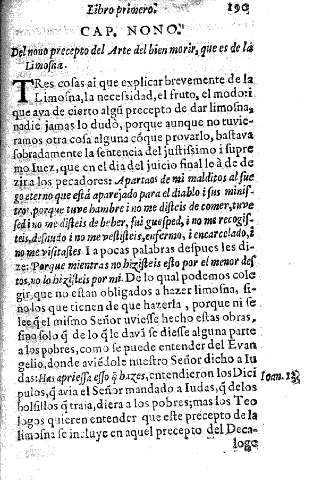 Libro primero. 190
CAP. NONO.
Del nono precepto del Arte del bien morir, que es de la
Limoſna.
TRes coſas ai que explicar brevemente de la
Limoſna, la neceſsidad, el fruto, el modo: i
que aya de cierto algũ precepto de dar limoſna,
nadie jamas lo dudò, porque aunque no tuvie-
ramos otra coſa alguna cõque provarlo, baſtava
ſobradamente la ſentencia del juſtiſsimo i ſupre
mo Iuez, que en el dia del juicio final le à de de
zir a los pecadores: Apartaos de mi malditos al fue
go eterno que eſtá aparejado para el diablo i ſus miniſ-
tros, porque tuve hambre i no me diſteis de comer, tuve
ſed i no me diſteis de beber, fui gueſped, i no me recogiſ-
teis, deſnudo i no me veſtiſteis, enfermo, i encarcelado, i
no me viſitaſtes. I a pocas palabras deſpues les di-
ze: Porque mientras no hiziſteis eſto por el menor deſ-
tos, no lo hiziſteis por mi. De lo qual podemos cole-
gir, que no eſtan obligados a hazer limoſna, ſi-
no los que tienen de que hazerla, porque ni ſe
lee q̃ el miſmo Señor uvieſſe hecho eſtas obras,
ſino ſolo q̃ de lo q̃ le davã ſe dieſſe alguna parte
a los pobres, como ſe puede entender del Evan
gelio, donde aviẽdole nueſtro Señor dicho a Iu
das: Has aprieſſa eſſo q̃ hazes, entendieron los Diſci Ioan. 13.
pulos, q̃ avia el Señor mandado a Iudas, q̃ de los
bolſillos q̃ traia, diera a los pobres; mas los Teo
logos quieren entender que eſte precepto de la
limoſna ſe incluye en aquel precepto del Deca-
logo